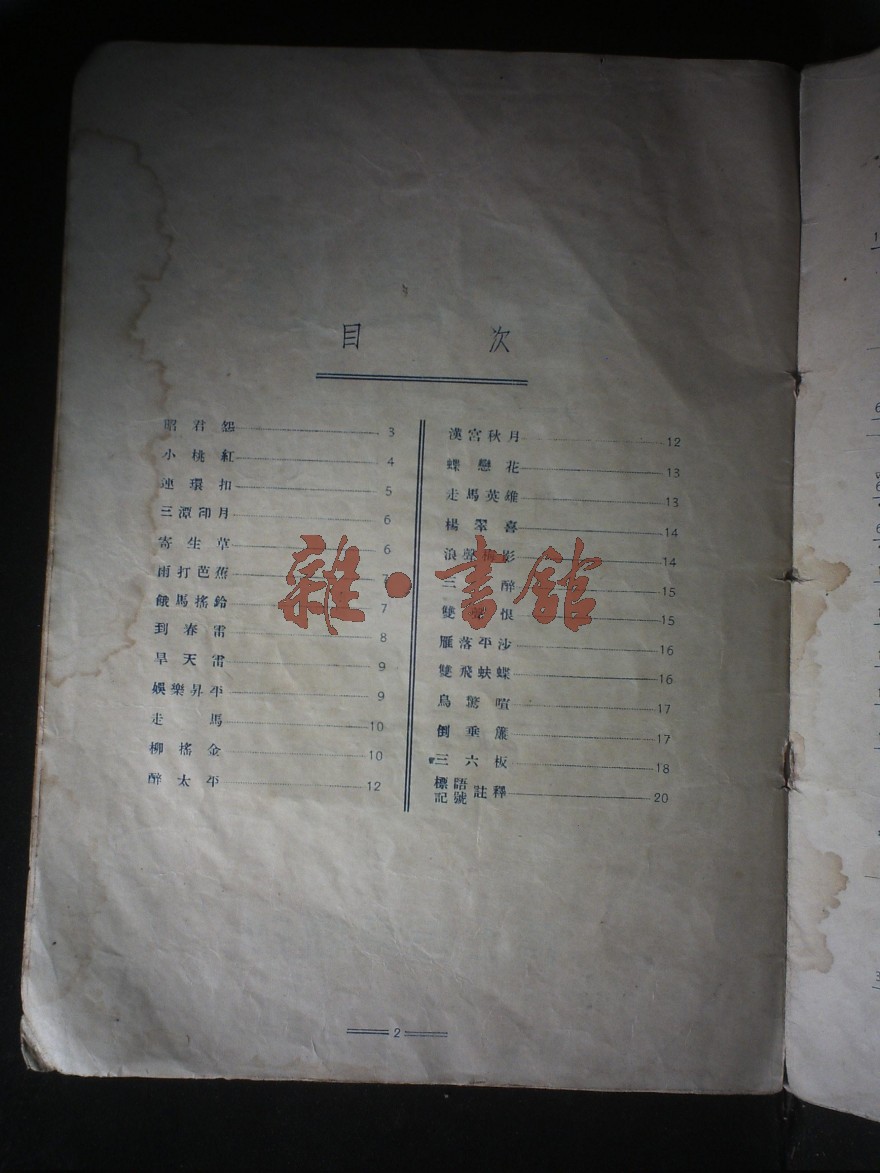 目 次
昭君怨 3
小桃紅 4
連環扣 5
三潭印月 6
寄生草 6
雨打芭蕉 7
餓馬搖鈴 7
到春雷 8
旱天雷 9
娛樂昇平 9
走馬 10
柳搖金 10
醉太平 12
漢宮秋月 12
蝶戀花 13
走馬英雄 13
楊翠喜 14
浪聲 影 14
三醉 15
雙 恨 15
雁落平沙 16
雙飛蚨蝶 16
鳥驚喧 17
倒垂簾 17
三六板 18
標語記號註釋 20
2
雜·書館